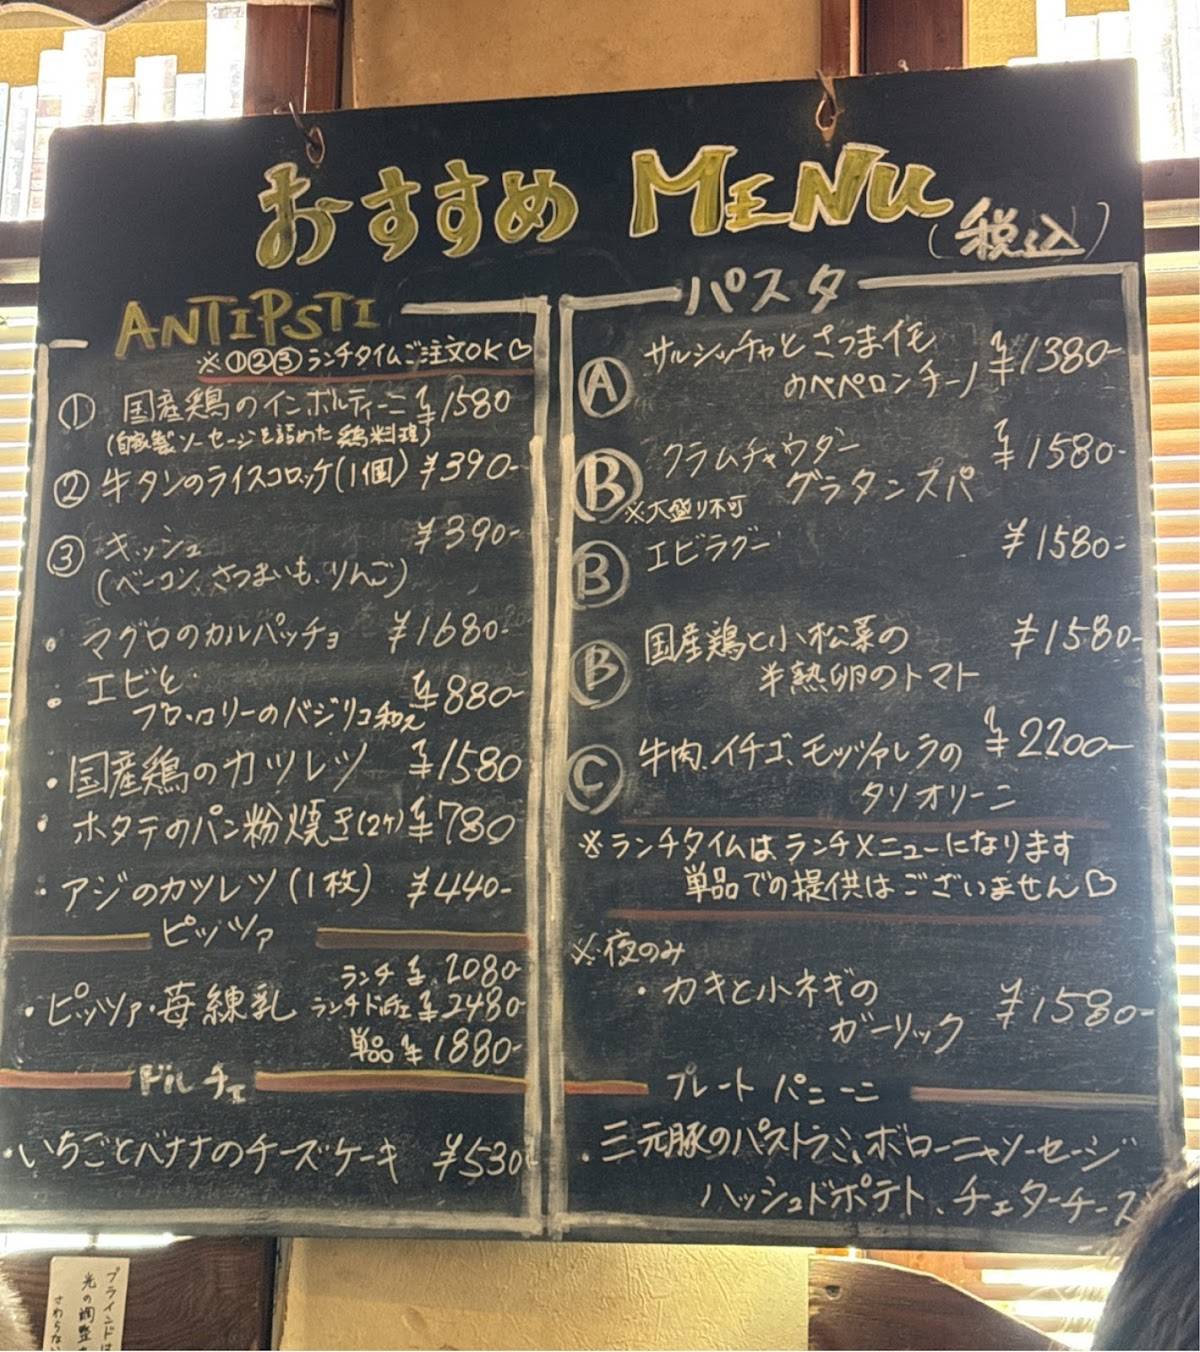 おすすめ MENU
(税込)
ANTIPSTI
※①②③ランチタイムご注文OK♡
① 国産鶏のインボルティーニ ¥1580
(自家製ソーセージを詰めた鶏料理)
② 牛タンのライスコロッケ(1個) ¥390-
③ キッシュ ¥390-
(ベーコン、さつまいも、りんご)
・マグロのカルパッチョ ¥1680-
・エビと
ブロッコリーのバジリコ和え ¥880-
・国産鶏のカツレツ ¥1580
・ホタテのパン粉焼き(2ケ) ¥780
・アジのカツレツ(1枚) ¥440-
ピッツァ
ランチ ¥2080-
・ピッツァ・苺練乳 ランチドルチェ ¥2480-
単品 ¥1880-
ドルチェ
・いちごとバナナのチーズケーキ ¥530
パスタ
Ⓐ サルシッチャとさつま芋
のペペロンチーノ ¥1380-
Ⓑ クラムチャウダー ¥1580-
グラタンスパ
※大盛り不可
Ⓑ エビラグー ¥1580-
Ⓑ 国産鶏と小松菜の ¥1580-
半熱卵のトマト
Ⓒ 牛肉、イチゴ、モッツァレラの ¥2200-
タリオリーニ
※ランチタイムはランチメニューになります
単品での提供はございません♡
※夜のみ
・カキと小ネギの ¥1580-
ガーリック
プレート パニーニ
・三元豚のパストラミ、ボローニャソーセージ
ハッシュドポテト、チェダーチーズ
ブラインドは
光の調整
さわらない